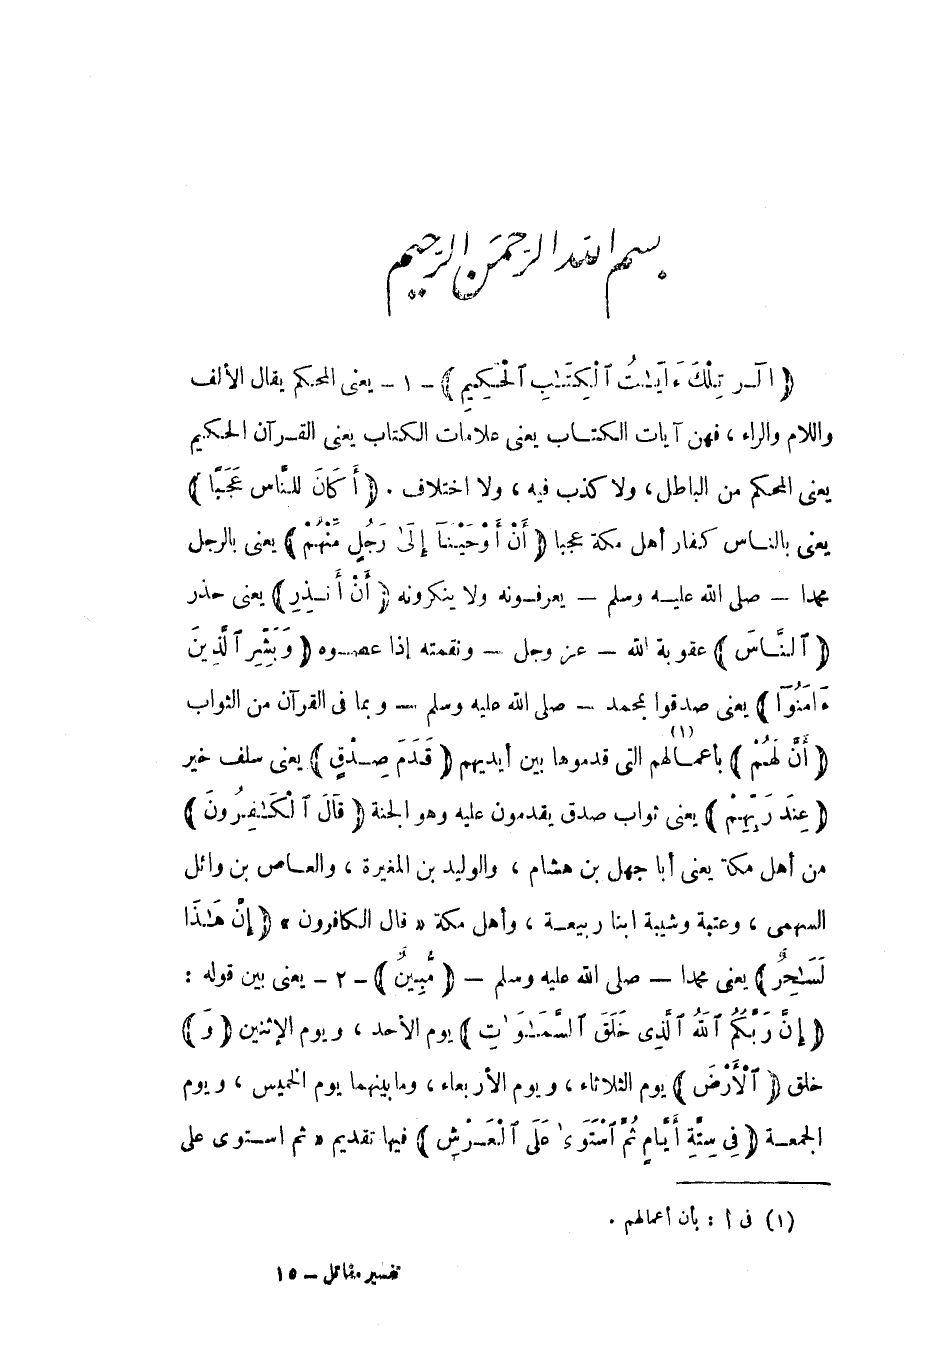 بسم الله الرحمن الرحيم
﴿ الٓـر تِلْكَ ءَايَـٰتُ ٱلْكِتَـٰبِ ٱلْحَكِيمِ ﴾ - ١ - يعنى المحكم يقال الألف
واللام والراء ، فهن آيات الكتاب يعنى علامات الكتاب يعنى القرآن الحكيم
يعنى المحكم من الباطل، ولا كذب فيه ، ولا اختلاف . ﴿ أَكَانَ للنَّاس عَجَبًا ﴾
يعنى بالناس كفار أهل مكة عجبا ﴿ أَنْ أَوْحَيْنَآ إِلَىٰ رَجُلٍ مِّنْهُمْ ﴾ يعنى بالرجل
محمدا — صلى الله عليه وسلم — يعرفونه ولا ينكرونه ﴿ أَنْ أَنذِرِ ﴾ يعنى حذر
﴿ ٱلنَّاسَ ﴾ عقوبة الله — عز وجل — ونقمته إذا عصوه ﴿ وَبَشِّرِ ٱلَّذِينَ
ءَامَنُوٓا ﴾ يعنى صدقوا بمحمد — صلى الله عليه وسلم — وبما فى القرآن من الثواب
﴿ أَنَّ لَهُمْ ﴾ بأعمالهم (١) التى قدموها بين أيديهم ﴿ قَدَمَ صِدْقٍ ﴾ يعنى سلف خير
﴿ عِندَ رَبِّهِمْ ﴾ يعنى ثواب صدق يقدمون عليه وهو الجنة ﴿ قَالَ ٱلْكَـٰفِرُونَ ﴾
من أهل مكة يعنى أبا جهل بن هشام ، والوليد بن المغيرة ، والعاص بن وائل
السهمى ، وعتبة وشيبة ابنا ربيعة ، وأهل مكة « قال الكافرون » ﴿ إِنَّ هَـٰذَا
لَسَـٰحِرٌ ﴾ يعنى محمدا — صلى الله عليه وسلم — ﴿ مُّبِينٌ ﴾ - ٢ - يعنى بين قوله :
﴿ إِنَّ رَبَّكُمُ ٱللَّهُ ٱلَّذِى خَلَقَ ٱلسَّمَـٰوَٰتِ ﴾ يوم الأحد ، ويوم الإثنين ﴿ وَ ﴾
خلق ﴿ ٱلْأَرْضَ ﴾ يوم الثلاثاء ، ويوم الأربعاء ، وما بينهما يوم الخميس ، ويوم
الجمعة ﴿ فِى سِتَّةِ أَيَّامٍ ثُمَّ ٱسْتَوَىٰ عَلَى ٱلْعَرْشِ ﴾ فيها تقديم « ثم استوى على
(١) فى أ : بأن أعمالهم .
تفسير مقاتل — ١٥